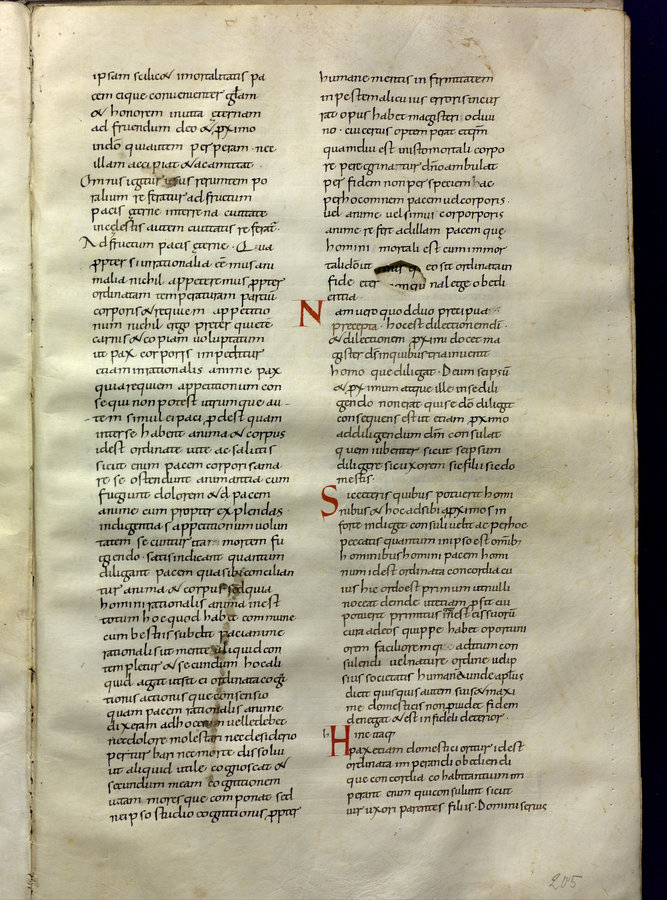 ipsam scilicet inmortalitatis pa
cem eique convenientem gl̄am
& honorem invita ęternam
ad fruendum deo & ꝓximo
indō quiautem perperam nec
illam accipiat & acamittat.
Omnis igitur usus rerum tem po
ralium refertur adfructum
pacis ęterne interrena civitate
incelestis autem civitatis refertur
Ad fructum pacis ęterne. Qua
ꝓpter siinrationalia eēmus ani
malia nichil appeteremus ꝓpter
ordinatam temperaturam partiū
corporis & requiem appetitio
num nichil ergo preter quietē
carnis & copiam voluptatum
ut pax corporis impeditur
etiam inrationalis anime pax
quia requiem appetitionum con
sequi non potest utrumque au
tem simul ei paci ꝓdest quam
inter se habent anima & corpus
idest ordinate vite ac salutis
sicut enim pacem corporis ama
re se ostendunt animantia cum
fugiunt dolorem & pacem
anime cum propter explendas
indigentias appetitionum volun
tatem secuntur ita mortem fu
giendo satis indicant quantum
diligant pacem qua sibi concilian
tur anima & corpus sed quia
homini rationalis anima inest
totum hoc quod habet commune
cum bestiis subdit paci anime
rationalis ut mente aliquid con
templetur & secundum hoc ali
quid agat ut sit ei ordinata cogi
tionis actionis que consensio
quam pacem rationalis anime
dixeram ad hoc enim velle debet
nec dolore molestari nec desiderio
perturbari nec morte dissolvi
ut aliquid utile cognoscat &
secundum eam cognitionem
vitam mores que componat sed
ne ipso studio cognitionis ꝓpter
humane mentis in firmitatem
in pestem alicuius erroris incur
rat opus habet magisterio divi
no cui certus optemperat et eꝗm
quamdiu est in isto mortali corpo
re peregrinatur a dn̄o ambulat
per fidem non per speciem hac
per hoc omnem pacem vel corporis
vel anime vel simul corporis
anime refert ad illam pacem que
homini mortali est cum inmor
tali dō ut eo sit ordinata in
fide eterna lege obedi
entia.
Nam vero quod duo precipua
precepta. hoc est dilectionem dī
& dilectionem ꝓximi docet ma
gister dś in quibus tria invenit
homo que diligat. Deum se ipsū
& ꝓximum atque ille in se dili
gendo non errat qui se dō diligit
consequens est ut etiam ꝓximo
ad diligendum dm̄ consulat
quem iubetur sicut se ipsum
diligere sic uxorem sic filiis sic do
mesticis.
Sic ceteris quibus potuerit homi
nibus & hoc ad sibi a ꝓximo si
forte indiget consuli velit ac per hoc
peccatis quantum in ipso est omnib;
hominibus homini pacem homi
num idest ordinata concordia cu
ius hic ordo est primum ut nulli
noceat deinde ut etiam ꝓsit cui
potuerit primitus inest ei suorū
cura ad eos quippe habet oportuni
orem faciliorem que aditum con
sulendi vel nature ordine vel ip
sius societatis humane unde aptus
dicit quisquis autem suis & maxi
me domesticis non providet fidem
denegat & est infideli deterior.
Hinc itaq;
pax etiam domestici oritur idest
ordinata imperandi obediendi
que concordia cohabitantium im
perant enim qui consulunt sicut
vir uxori parentes filiis. Domini servis
205